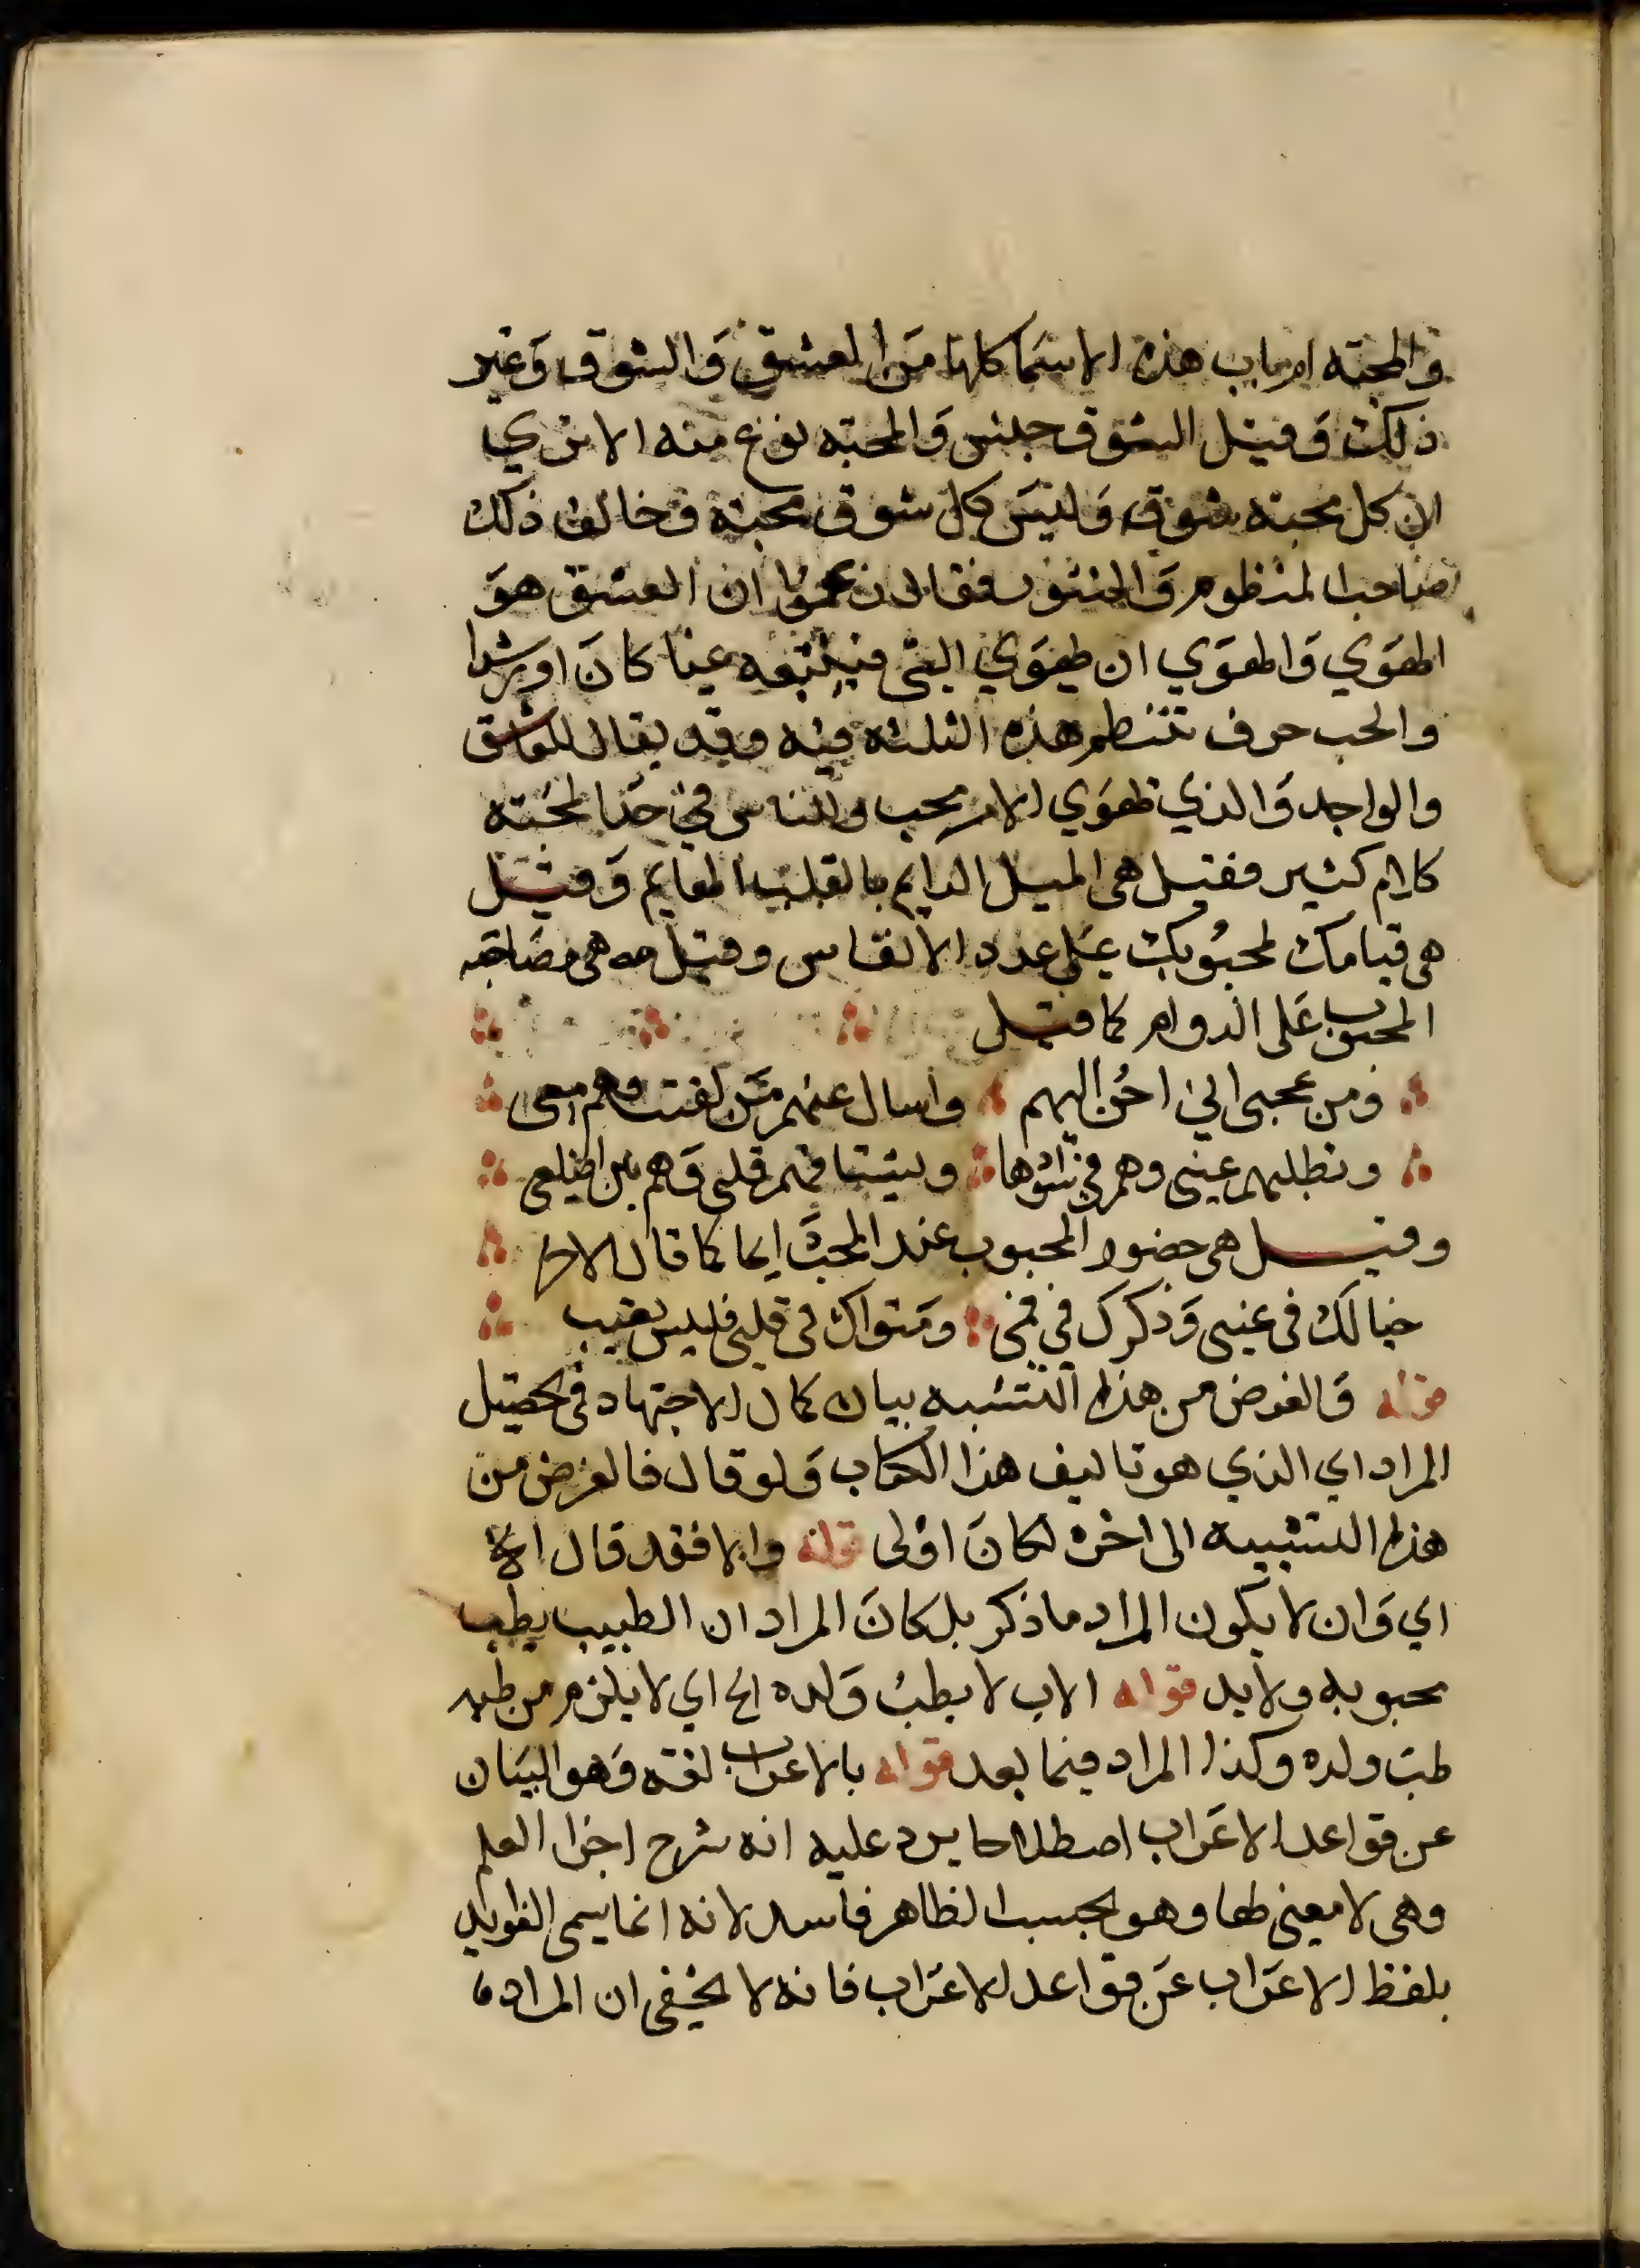 والمحبه ام باب هذه الاسما كلها من العشق والشوق وغير
ذلك وقيل الشوق جنس والمحبه نوع منه الا تري
ان كل محبه شوق وليس كل شوق محبه وخالف ذلك
صاحب المنظوم والمنثور فقال زعموا ان العشق هو
الهوي والهوي ان يهوي الشى فيتبعه غيا كان او رشدا
والحب حرف تنتظم هذه الثلثه فيه وقد يقال للعاشق
والواجد والذي يهوي الامر محب وللناس في حد المحبه
كلام كثير فقيل هى الميل الدايم بالقلب الهايم وقيل
هى قيامك لمحبوبك على عدد الانفاس وقيل هى مصاحبه
المحبوب على الدوام كما قيل
ومن عجبى اني احن اليهم واسال عنهم من لقيت وهم معى
وتطلبهم عينى وهم في سوادها ويشتاقهم قلبى وهم بين اضلعى
وقيل هى حضور المحبوب عند المحب كما قال
خيالك فى عينى وذكرك في فمى ومثواك فى قلبى فليس يغيب
قوله والغرض من هذا التشبيه بيان كمال الاجتهاد فى تحصيل
المراد اي الذي هو تاليف هذا الكتاب ولو قال فالغرض من
هذا التشبيه الى اخره لكان اولى قوله والا فقد قال الخ
اي وان لا يكون المراد ما ذكر بل كان المراد ان الطبيب يطب
محبوبه ولا بد قوله الاب لا يطب ولده الخ اي لا يلزم من طبه
طب ولده وكذا المراد فيما بعد قوله بالاعراب لغه وهو البيان
عن قواعد الاعراب اصطلاحا يرد عليه انه شرح اجزا العلم
وهى لا معنى لها وهو بحسب الظاهر فاسد لانه انما يسمى الفوايد
بلفظ الاعراب عن قواعد الاعراب فانه لا يخفى ان المراد